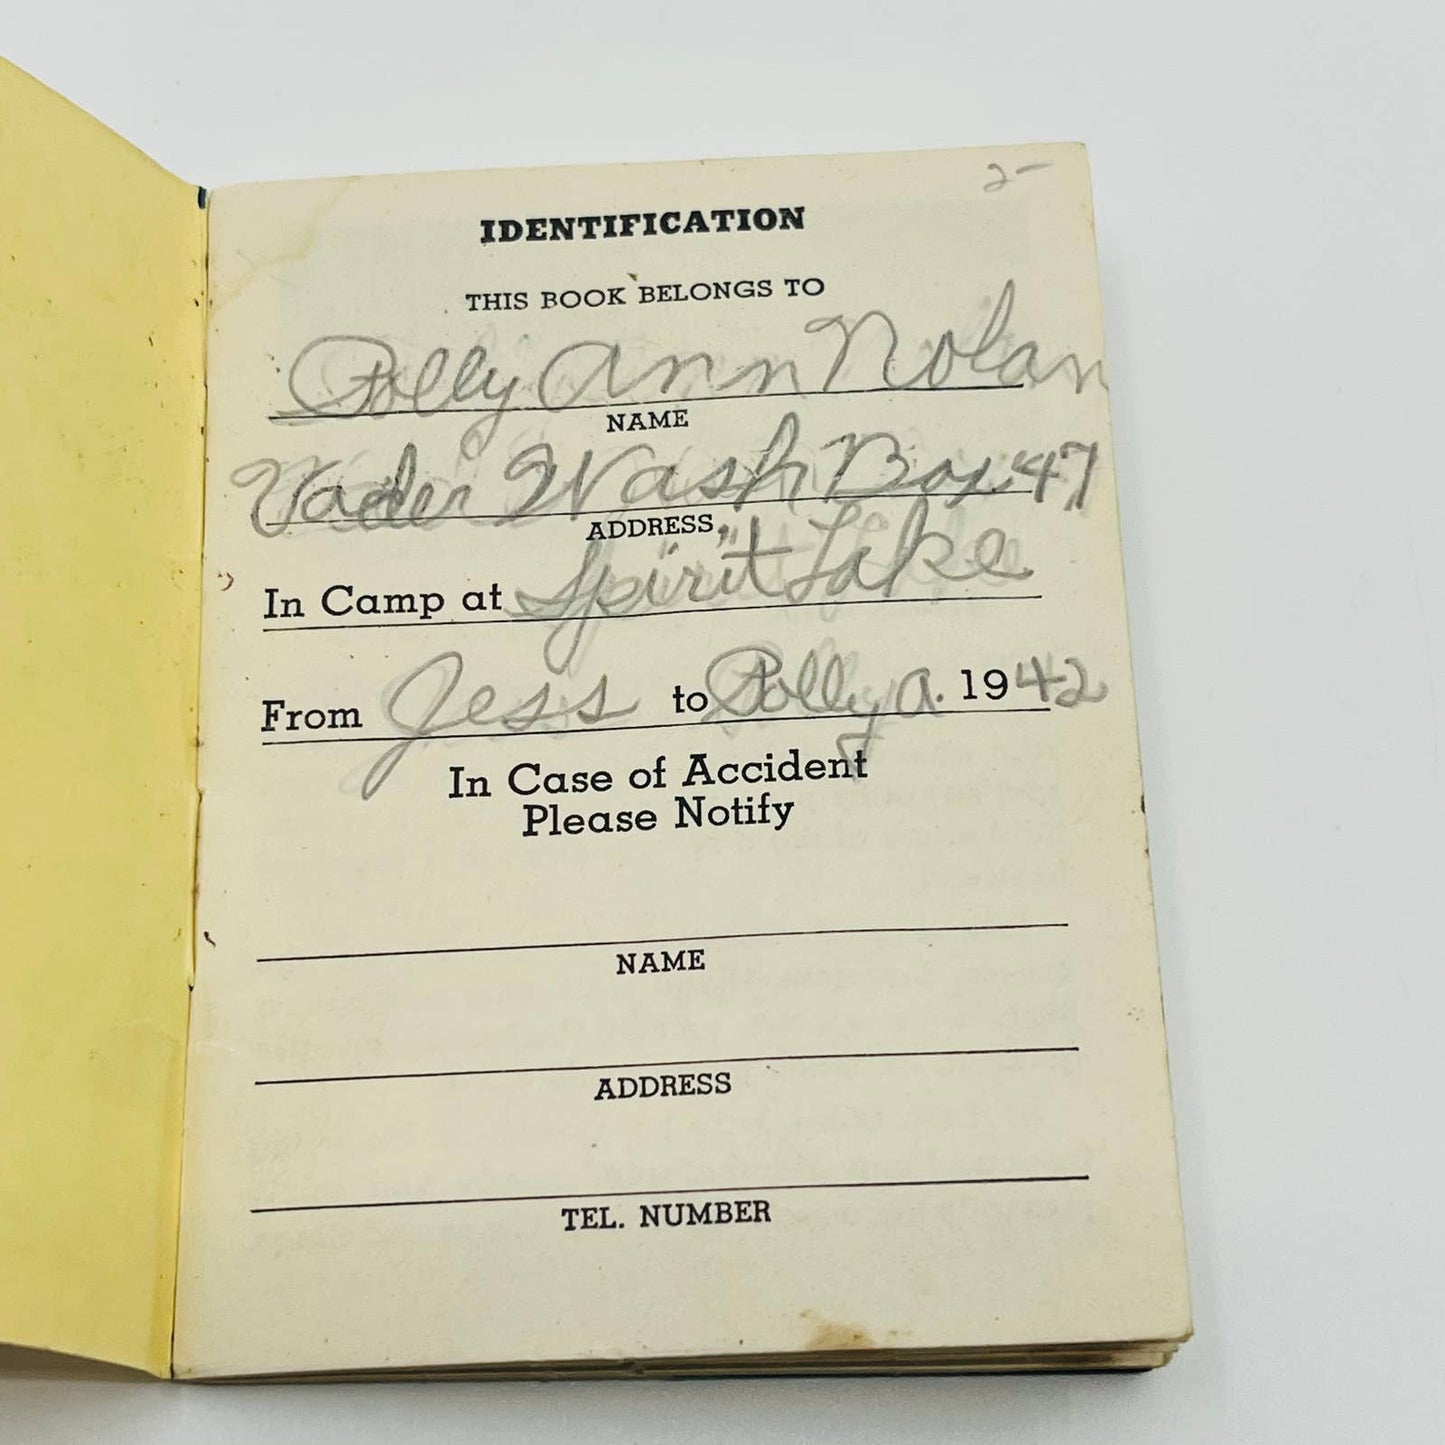 2-
IDENTIFICATION
THIS BOOK BELONGS TO
Polly Ann Nolan
NAME
Vader Wash Box 47
ADDRESS
In Camp at Spirit Lake
From Jess to Polly A. 1942
In Case of Accident
Please Notify
NAME
ADDRESS
TEL. NUMBER